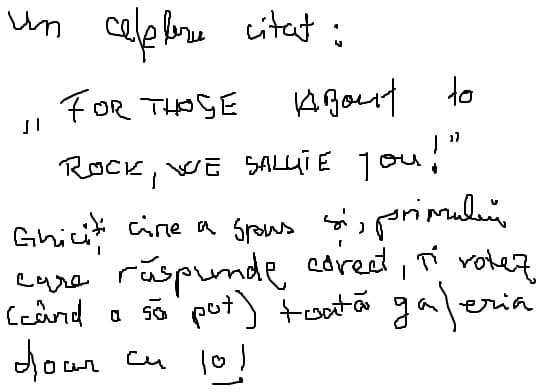 Un celebru citat:
„FOR THOSE ABOUT to
ROCK, WE SALUTE you!"
Ghiciți cine a spus și, primului
care răspunde corect, îi votez
(când o să pot) toată galeria
doar cu 10!